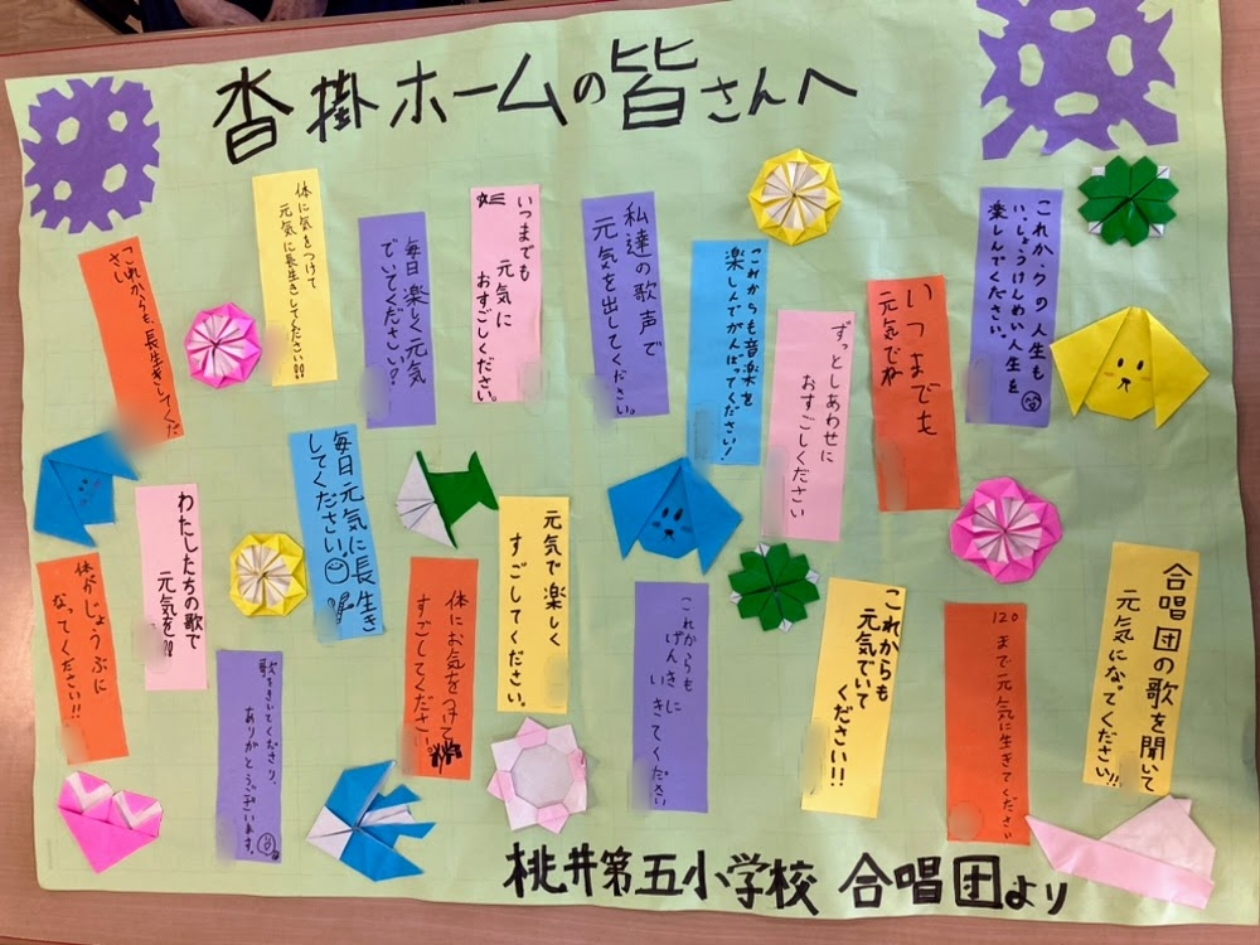 沓掛ホームの皆さんへ
これからも、長生きしてくだ
さい
体に気をつけて
元気に長生きしてください!!
毎日楽しく元気
でいてください!
いつまでも
元気に
おすごしください。
私達の歌声で
元気を出してください。
これからも音楽を
楽しんでがんばってください!
ずっとしあわせに
おすごしください
いつまでも
元気でね
の人生も
い、しょうけんめい人生を
楽しんでください。
わたしたちの歌で
元気を!!
毎日元気に長生き
してください。
元気で楽しく
すごしてください。
体がじょうぶに
なってください!!
歌をきいてくださり、
ありがとうございます。
体にお気をつけて
すごしてください。
これからも
げんきに
いきてください
これからも
元気でいて
ください!!
120まで元気に生きてください
合唱団の歌を聞いて
元気になってください!!
桃井第五小学校 合唱団より